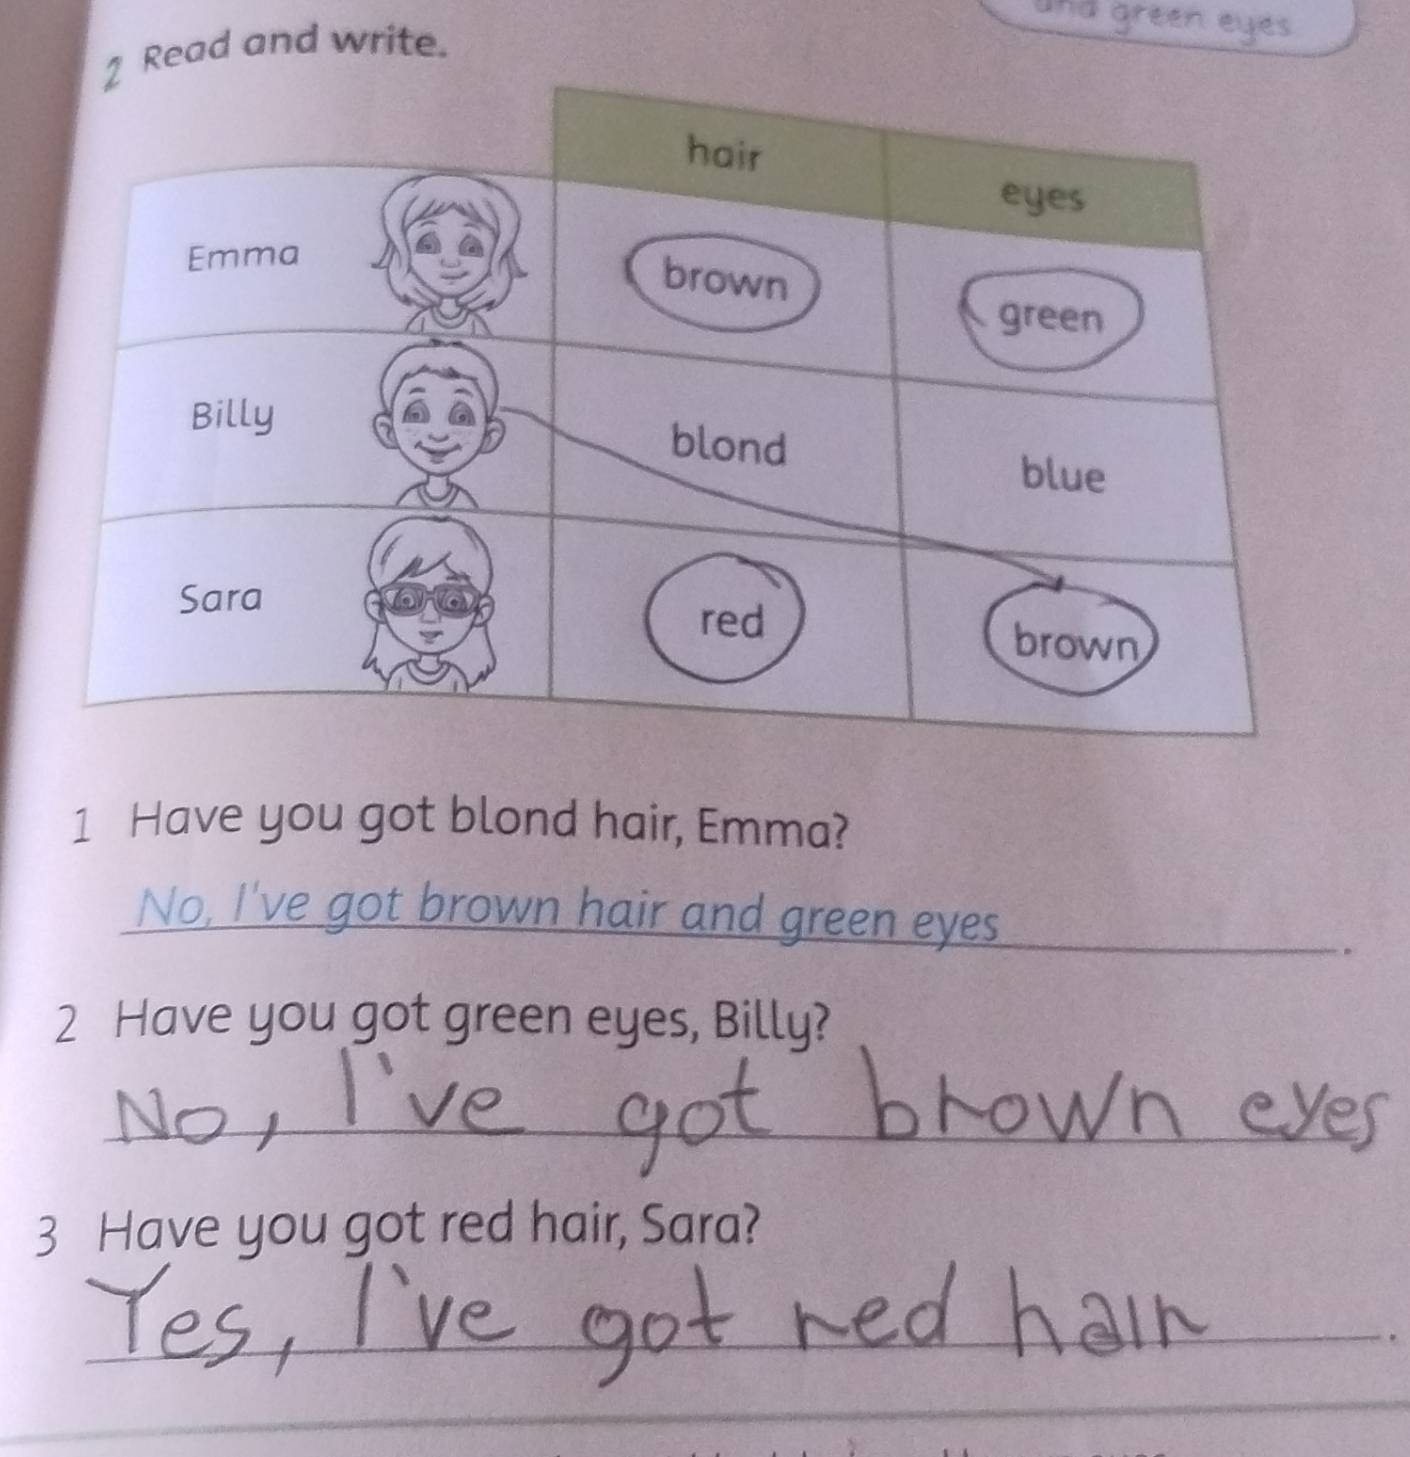 and green eyes
2 Read and write.
hair eyes
Emma brown green
Billy blond blue
Sara red brown
1 Have you got blond hair, Emma?
No, I've got brown hair and green eyes.
2 Have you got green eyes, Billy?
No, I've got brown eyes
3 Have you got red hair, Sara?
Yes, I've got red hair.